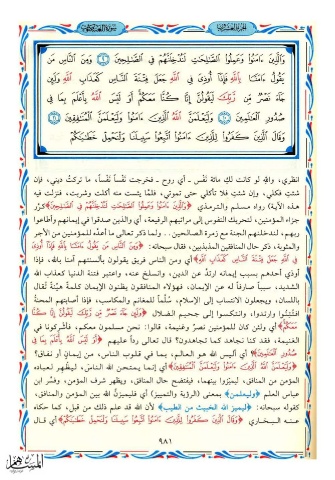 الجزء العشرون
سورة العنكبوت
وَالَّذِينَ ءَامَنُوا وَعَمِلُوا الصَّالِحَاتِ لَنُدْخِلَنَّهُمْ فِي الصَّالِحِينَ ۝ وَمِنَ النَّاسِ مَن
يَقُولُ ءَامَنَّا بِاللَّهِ فَإِذَا أُوذِيَ فِي اللَّهِ جَعَلَ فِتْنَةَ النَّاسِ كَعَذَابِ اللَّهِ وَلَئِن
جَاءَ نَصْرٌ مِّن رَّبِّكَ لَيَقُولُنَّ إِنَّا كُنَّا مَعَكُمْ أَوَلَيْسَ اللَّهُ بِأَعْلَمَ بِمَا فِي
صُدُورِ الْعَالَمِينَ ۝ وَلَيَعْلَمَنَّ اللَّهُ الَّذِينَ ءَامَنُوا وَلَيَعْلَمَنَّ الْمُنَافِقِينَ ۝
وَقَالَ الَّذِينَ كَفَرُوا لِلَّذِينَ ءَامَنُوا اتَّبِعُوا سَبِيلَنَا وَلْنَحْمِلْ خَطَايَاكُمْ
انظري، والله لو كانت لك مائة نَفْس ـ أي روح ـ فخرجت نفساً نفساً، ما تركتُ ديني، فإن
شئتِ فكلي، وإن شئتِ فلا تأكلي حتى تموتي، فلمَّا يئست منه أكلت وشربت، فنزلت فيه
هذه الآية) رواه مسلم والترمذي ﴿وَالَّذِينَ ءَامَنُوا وَعَمِلُوا الصَّالِحَاتِ لَنُدْخِلَنَّهُمْ فِي الصَّالِحِينَ﴾ كرَّر
جزاء المؤمنين، لتحريك النفوس إلى مراتبهم الرفيعة، أي والذين صدقوا في إيمانهم وأطاعوا
ربهم، لندخلنهم الجنة مع زمرة الصالحين . . ولما ذكر تعالى ما أعدَّه للمؤمنين من الأجر
والمثوبة، ذكر حال المنافقين المذبذبين، فقال سبحانه: ﴿وَمِنَ النَّاسِ مَن يَقُولُ ءَامَنَّا بِاللَّهِ فَإِذَا أُوذِيَ
فِي اللَّهِ جَعَلَ فِتْنَةَ النَّاسِ كَعَذَابِ اللَّهِ﴾ أي ومن الناس فريق يقولون بألسنتهم آمنا بالله، فإذا
أوذي أحدهم بسبب إيمانه ارتدَّ عن الدين، وانسلخ عنه، واعتبر فتنة الدنيا كعذاب الله
الشديد، سبباً صارفاً له عن الإيمان، فهؤلاء المنافقون يظنون الإيمان كلمةً هيِّنة تُقال
باللسان، ويجعلون الانتساب إلى الإسلام، سُلَّماً للمغانم والمكاسب، فإذا أصابتهم المحنةُ
افتُتِنُوا وارتدوا، وانتكسوا إلى جحيم الضلال ﴿وَلَئِن جَاءَ نَصْرٌ مِّن رَّبِّكَ لَيَقُولُنَّ إِنَّا كُنَّا
مَعَكُمْ﴾ أي ولئن كان للمؤمنين نصرٌ وغنيمة، قالوا: نحن مسلمون معكم، فأشركونا في
الغنيمة، فقد كنا نجاهد كما تجاهدون؟ قال تعالى رداً عليهم ﴿أَوَلَيْسَ اللَّهُ بِأَعْلَمَ بِمَا فِي
صُدُورِ الْعَالَمِينَ﴾؟ أي أليس الله هو العالم، بما في قلوب الناس، من إيمانٍ أو نفاق؟
﴿وَلَيَعْلَمَنَّ اللَّهُ الَّذِينَ ءَامَنُوا وَلَيَعْلَمَنَّ الْمُنَافِقِينَ﴾ أي إنما يمتحن الله الناسَ، ليظهر لعباده
المؤمن من المنافق، ليميِّزوا بينهما، فيفتضح حال المنافق، ويظهر شرف المؤمن، وفسَّر ابن
عباس العلم ﴿وليعلمن﴾ بمعنى (الرؤية والتمييز) أي فليميزنَّ الله بين المؤمن والمنافق،
كقوله سبحانه: ﴿ليميز الله الخبيث من الطيب﴾ لأن الله قد علم ذلك من قبل، كما حكاه
عنه البخاري ﴿وَقَالَ الَّذِينَ كَفَرُوا لِلَّذِينَ ءَامَنُوا اتَّبِعُوا سَبِيلَنَا وَلْنَحْمِلْ خَطَايَاكُمْ﴾ أي قال
٩٨١